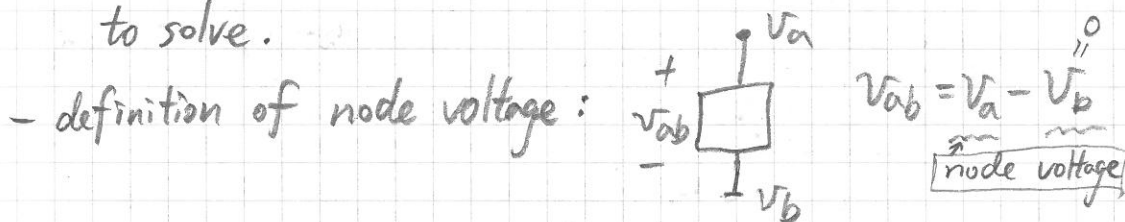 to solve.
- definition of node voltage :
+
v_ab
-
v_a
v_b
v_ab = v_a - v_b
0
"
node voltage